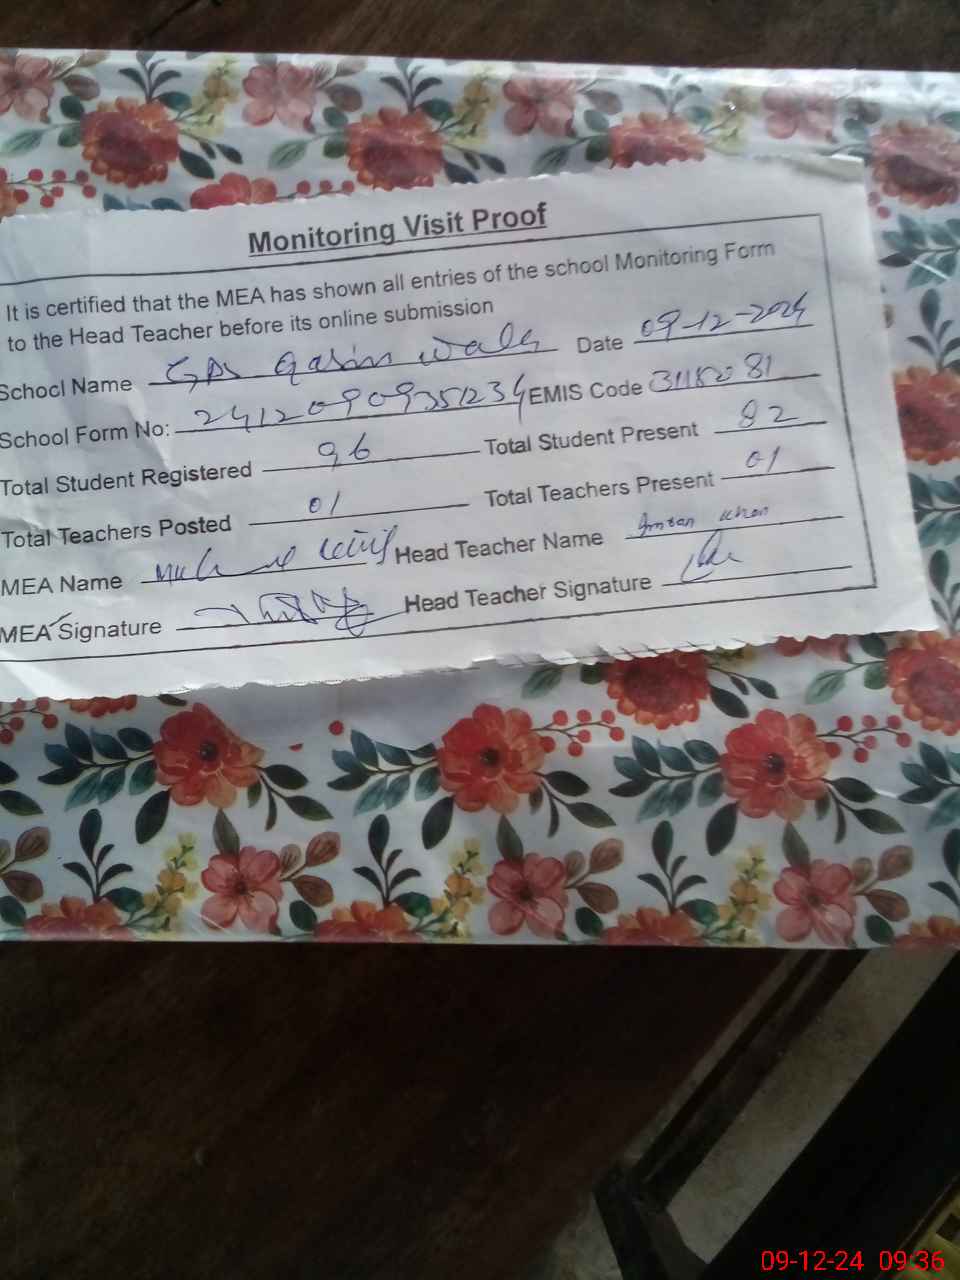 Monitoring Visit Proof
It is certified that the MEA has shown all entries of the school Monitoring Form
to the Head Teacher before its online submission
School Name GPS Qasim Wala Date 09-12-2024
School Form No: 24120909351234 EMIS Code 31152081
Total Student Registered 96 Total Student Present 82
Total Teachers Posted 01 Total Teachers Present 01
MEA Name Head Teacher Name Imran Khan
MEA Signature Head Teacher Signature
09-12-24 09:36